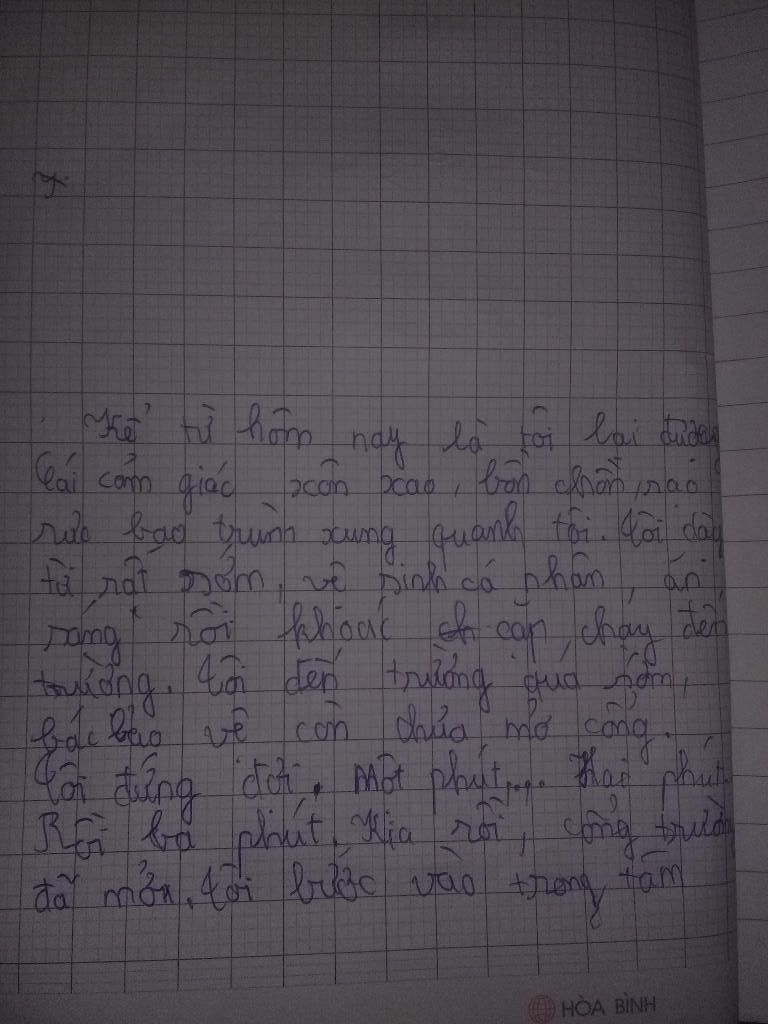 Kể từ hôm nay là tôi lại được
Cái cảm giác xôn xao, bồn chồn, náo
nức bao trùm xung quanh tôi. Tôi dậy
từ rất sớm, vệ sinh cá nhân, ăn
sáng rồi khoác cặp, chạy đến
trường. Tôi đến trường quá sớm,
bác bảo vệ còn chưa mở cổng.
Tôi đứng đợi. Một phút... Hai phút
Rồi ba phút. Kia rồi, cổng trường
đã mở. Tôi bước vào trong tâm
HÒA BÌNH